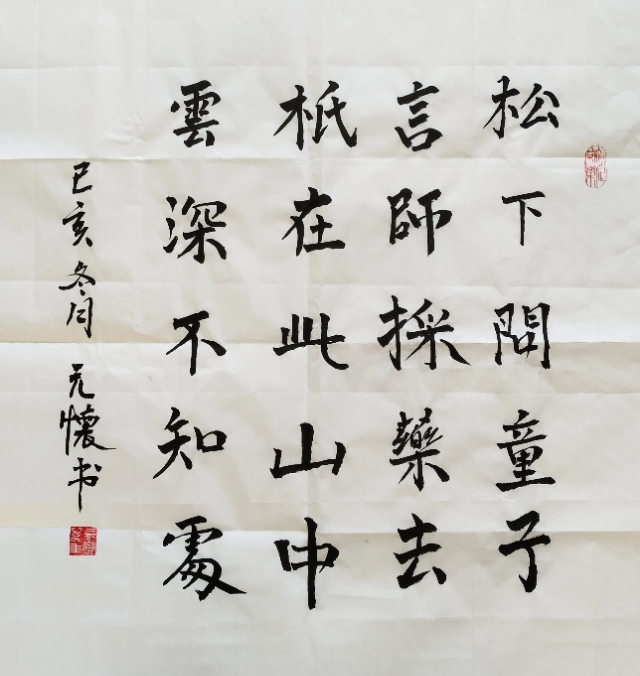 松下問童子
言師採藥去
柢在此山中
雲深不知處
己亥冬月 元懷书